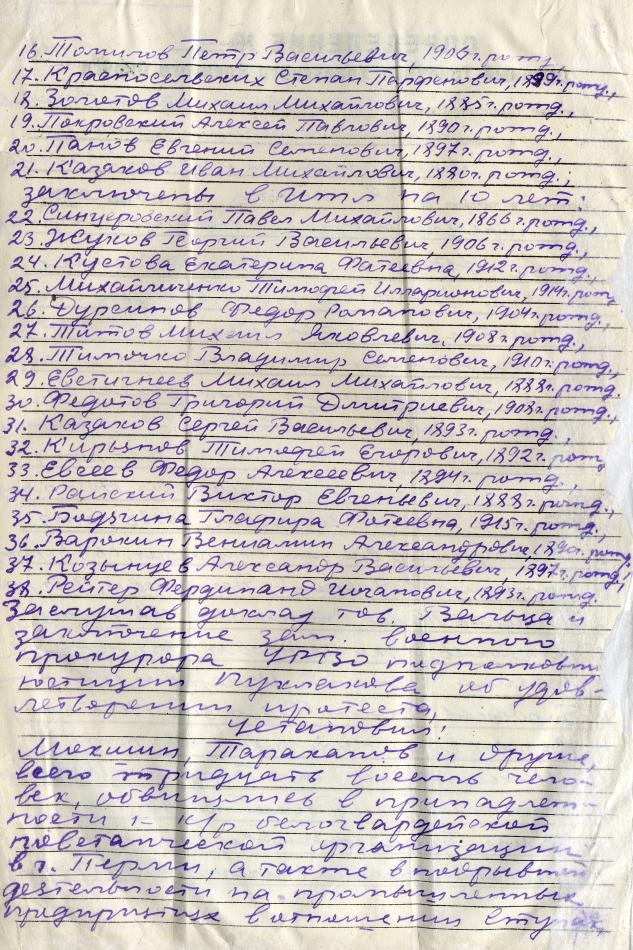 16. Томилов Петр Васильевич, 1906 г. рожд.,
17. Красносельских Степан Парфенович, 1899 г. рожд.,
18. Золотов Михаил Михайлович, 1885 г. рожд.,
19. Покровский Алексей Павлович, 1890 г. рожд.,
20. Панов Евгений Семенович, 1897 г. рожд.,
21. Казаков Иван Михайлович, 1880 г. рожд.,
заключены в ИТЛ на 10 лет:
22. Синцеровский Павел Михайлович, 1866 г. рожд.,
23. Жуков Георгий Васильевич, 1906 г. рожд.,
24. Кустова Екатерина Фатеевна, 1912 г. рожд.,
25. Михайличенко Тимофей Илларионович, 1914 г. рожд.
26. Дурсинов Федор Романович, 1904 г. рожд.,
27. Титов Михаил Яковлевич, 1908 г. рожд.,
28. Тимочко Владимир Семенович, 1910 г. рожд.,
29. Евстигнеев Михаил Михайлович, 1888 г. рожд.
30. Федотов Григорий Дмитриевич, 1908 г. рожд.,
31. Казаков Сергей Васильевич, 1893 г. рожд.,
32. Тимофей Егорович, 1892 г. рожд
33. Евсеев Федор Алексеевич, 1894 г. рожд.,
34. Райский Виктор Евгеньевич, 1888 г. рожд.,
35. Глафира Фотеевна, 1915 г. рожд.,
36. Варокин Вениамин Александрович, 1890 г. рожд.
37. Козынцев Александр Васильевич, 1897 г. рожд.,
38. Рейтер Фердинанд 1893 г. рожд.
Заслушав доклад тов. Вальца и
заключение зам. военного
прокурора УРВО подполковн
юстиции Пуклакова об удов-
летворении протеста,
установил:
Мокшин, Тараканов и другие,
всего тридцать восемь чело-
век, обвинялись в принадлеж-
ности к к/р белогвардейской
повстанческой организации
в г. Перми, а также в подрывной
деятельности на промышленных
предприятиях в отношении